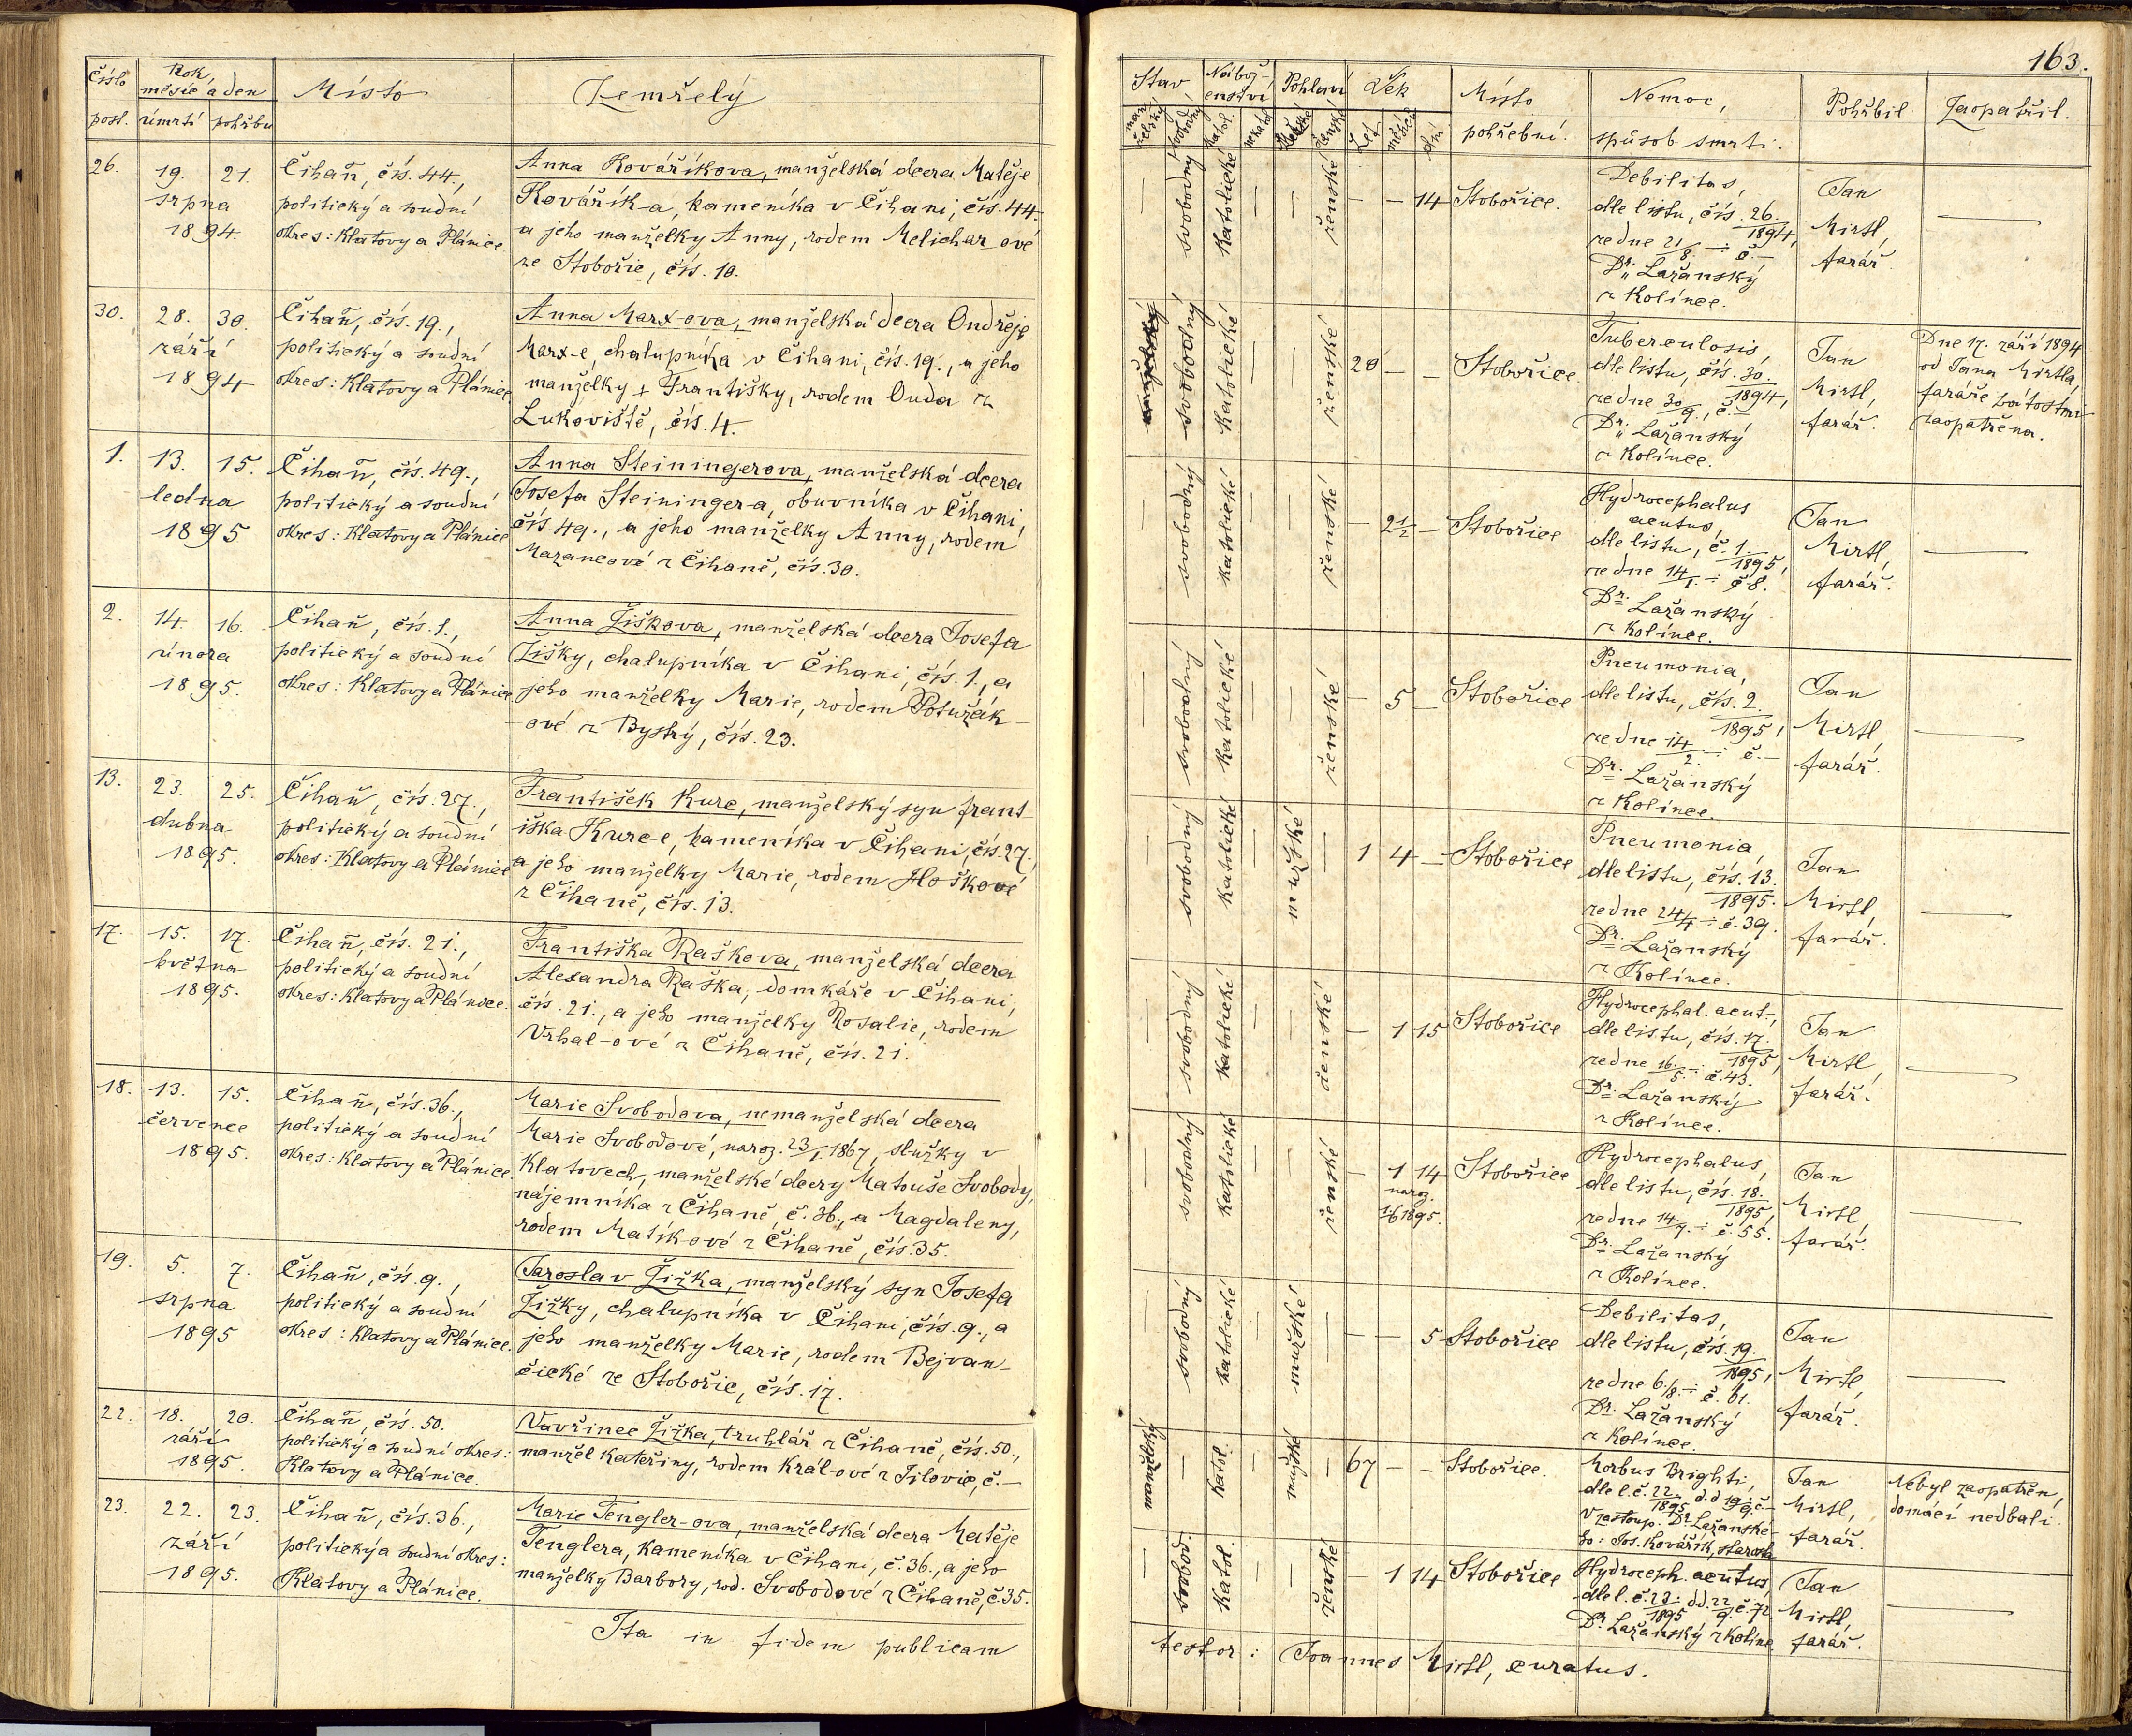 163.
Číslo
post.
Rok,
měsíc a den
úmrtí
pohřbu
Místo
Zemřelý
Stav
Nábož-
enství
Pohlaví
Věk
Let
měsíců
dní
Místo
pohřební.
Nemoc,
spůsob smrti.
Pohřbil
Zaopatřil.
26.
19. 21.
srpna
1894.
Čihaň, čís. 44.,
politický a soudní
okres: Klatovy a Plánice.
Anna Kovaříkova, manželská dcera Matěje
Kovářík-a, kameníka v Čihani, čís. 44
a jeho manželky Anny, rodem Melichar-ové
ze Stobořic, čís. 10.
—
svobodný
Katolické
—
—
ženské
— — 14
Stobořice.
Debilitas,
dle listu, čís. 26./1894,
ze dne 21/8. : č.—
Dr. Lažanský
z Kolince.
Jan
Mirtl,
farář.
—
30.
28. 30.
září
1894
Čihaň, čís. 19.,
politický a soudní
okres: Klatovy a Plánice
Anna Marx-ova, manželská dcera Ondřeje
Marx-e, chalupníka v Čihani, čís. 19., a jeho
manželky † Františky, rodem Ouda z
Lukoviště, čís. 4.
manželský
svobodný
Katolické
—
—
ženské
20 — —
Stobořice.
Tuberculosis,
dle listu, čís. 30./1894,
ze dne 30/9., č.—
Dr. Lažanský
z Kolince.
Jan
Mirtl,
farář.
Dne 17. září 1894
od Jana Mirtla,
faráře svátostmi
zaopatřena.
1.
13. 15.
ledna
1895
Čihaň, čís. 49.,
politický a soudní
okres: Klatovy a Plánice
Anna Steiningerova, manželská dcera
Josefa Steininger-a, obuvníka v Čihani,
čís. 49., a jeho manželky Anny, rodem
Mazancové z Čihaně, čís. 30.
—
svobodný
Katolické
—
—
ženské
— 2½ —
Stobořice
Hydrocephalus
acutus,
dle listu, č. 1./1895,
ze dne 14/1. : č 8.
Dr. Lažanský
z Kolince.
Jan
Mirtl,
farář.
—
2.
14. 16.
února
1895.
Čihaň, čís. 1.,
politický a soudní
okres: Klatovy a Plánice
Anna Žiškova, manželská dcera Josefa
Žišky, chalupníka v Čihani, čís. 1., a
jeho manželky Marie, rodem Potužák-
ové z Bystrý, čís. 23.
—
svobodný
Katolické
—
—
ženské
— 5 —
Stobořice
Pneumonia,
dle listu, čís. 2./1895,
ze dne 14/2. : č.—
Dr. Lažanský
z Kolince.
Jan
Mirtl,
farář.
—
13.
23. 25.
dubna
1895.
Čihaň, čís. 27.,
politický a soudní
okres: Klatovy a Plánice
František Kurc, manželský syn Frant-
iška Kurc-e, kameníka v Čihani, čís. 27.,
a jeho manželky Marie, rodem Hoškové
z Čihaně, čís. 13.
—
svobodný
Katolické
—
mužské
—
1 4 —
Stobořice
Pneumonia,
dle listu, čís. 13./1895.
ze dne 24/4. : č. 39.
Dr. Lažanský
z Kolince.
Jan
Mirtl,
farář.
—
17.
15. 17.
května
1895.
Čihaň, čís. 21.,
politický a soudní
okres: Klatovy a Plánice.
Františka Raškova, manželská dcera
Alexandra Raška, domkáře v Čihani,
čís. 21., a jeho manželky Rosalie, rodem
Vrhal-ové z Čihaně, čís. 21.
—
svobodný
Katolické
—
—
ženské
— 1 15
Stobořice
Hydrocephal. acut.,
dle listu, čís. 17./1895,
ze dne 16./5. : č. 43.
Dr. Lažanský
z Kolince.
Jan
Mirtl,
farář.
—
18.
13. 15.
července
1895.
Čihaň, čís. 36.,
politický a soudní
okres: Klatovy a Plánice.
Marie Svobodova, nemanželská dcera
Marie Svobodové, naroz. 23/1 1867, služky v
Klatovech, manželské dcery Matouše Svobody,
nájemníka z Čihaně, č. 36., a Magdaleny,
rodem Matík-ové z Čihaně, čís. 35.
—
svobodný
Katolické
—
—
ženské
— 1 14
naroz.
1/6 1895.
Stobořice
Hydrocephalus,
dle listu, čís. 18./1895,
ze dne 14./7. : č. 55.
Dr. Lažanský
z Kolince.
Jan
Mirtl,
farář.
—
19.
5. 7.
srpna
1895
Čihaň, čís. 9.,
politický a soudní
okres: Klatovy a Plánice.
Jaroslav Žižka, manželský syn Josefa
Žižky, chalupníka v Čihani, čís. 9., a
jeho manželky Marie, rodem Bejvan-
čické ze Stobořic, čís. 17.
—
svobodný
Katolické
—
mužské
—
— — 5
Stobořice
Debilitas,
dle listu, čís. 19./1895,
ze dne 6./8. : č. 61.
Dr. Lažanský
z Kolince.
Jan
Mirtl,
farář.
—
22.
18. 20.
září
1895.
Čihaň, čís. 50.
politický a soudní okres:
Klatovy a Plánice.
Vavřinec Žižka, truhlář z Čihaně, čís. 50.,
manžel Kateřiny, rodem Král-ové z Jilovic, č.—
manželský
—
Katol.
—
mužské
—
67 — —
Stobořice.
Morbus Brighti,
dle l. č. 22./1895 d. d 19/9. č—
V zastoup. Dr. Lažanské-
ho: Jos. Kovářík, starosta
Jan
Mirtl,
farář.
Nebyl zaopatřen,
domácí nedbali.
23.
22. 23.
září
1895.
Čihaň, čís. 36.,
politický a soudní okres:
Klatovy a Plánice.
Marie Tengler-ova, manželská dcera Matěje
Tenglera, kameníka v Čihani, č. 36., a jeho
manželky Barbory, rod. Svobodové z Čihaně, č. 35.
—
svobod.
Katol.
—
—
ženské
— 1 14
Stobořice
Hydroceph. acutus,
dle l. č. 23./1895 d d. 22/9. č. 72
Dr. Lažanský z Kolince
Jan
Mirtl,
farář.
—
Ita in fidem publicam
testor: Joannes Mirtl, curatus.